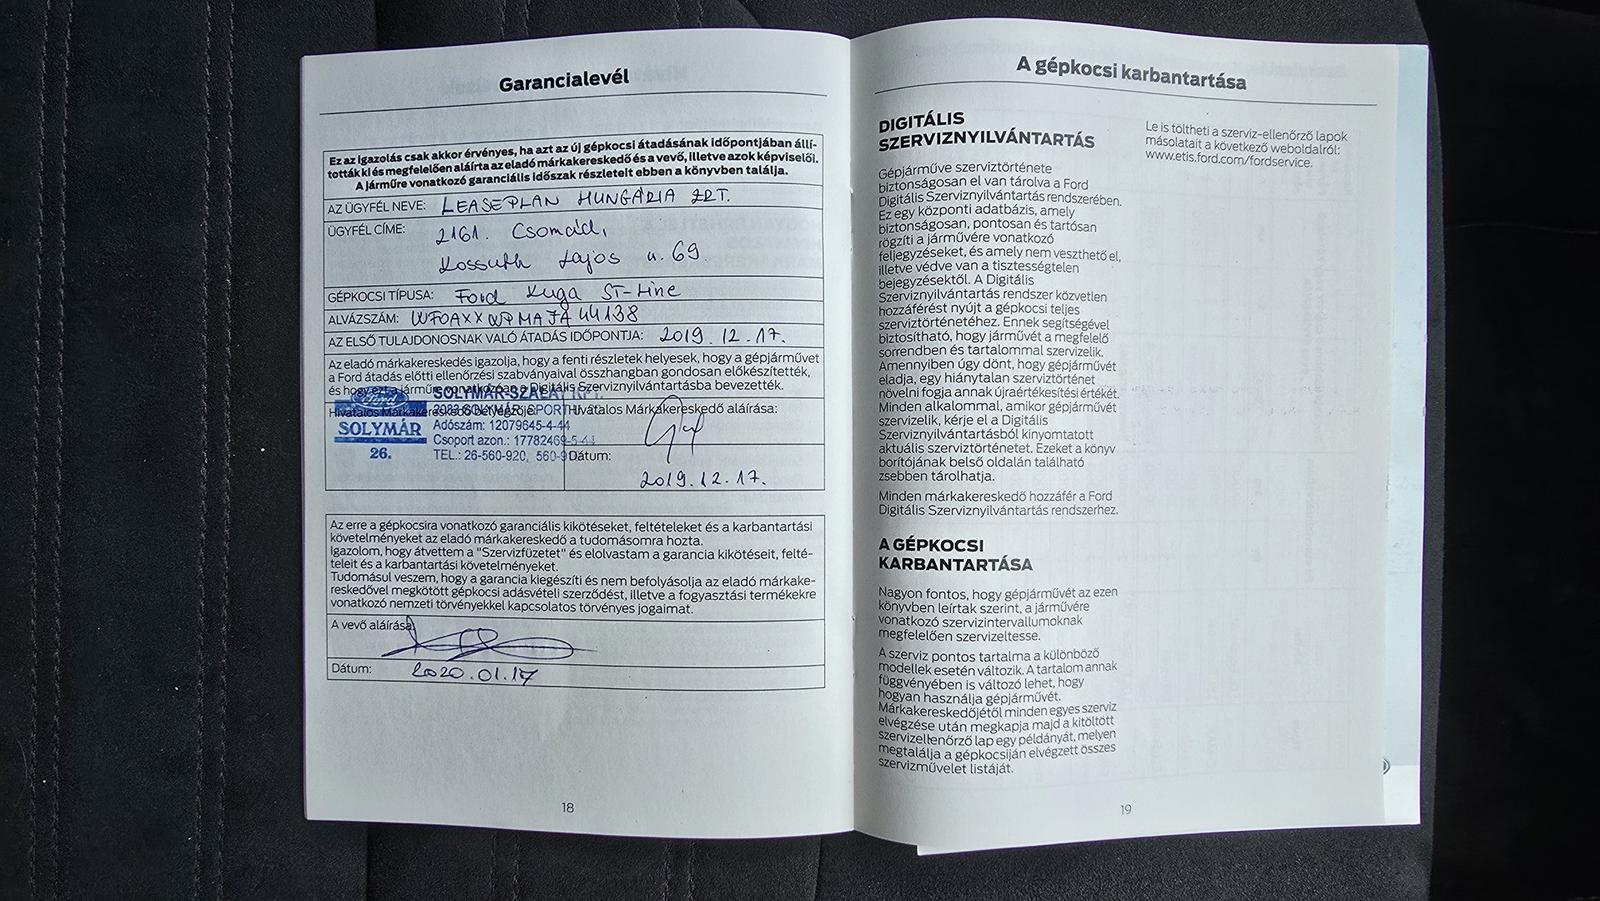 Garancialevél
Ez az igazolás csak akkor érvényes, ha azt az új gépkocsi átadásának időpontjában állí-
tották ki és megfelelően aláírta az eladó márkakereskedő és a vevő, illetve azok képviselői.
A járműre vonatkozó garanciális időszak részleteit ebben a könyvben találja.
AZ ÜGYFÉL NEVE: LEASEPLAN HUNGÁRIA ZRT.
ÜGYFÉL CÍME: 2161. Csomád,
Kossuth Lajos u. 69.
GÉPKOCSI TÍPUSA: Ford Kuga ST-Line
ALVÁZSZÁM: WF0AXXWPMAJA44138
AZ ELSŐ TULAJDONOSNAK VALÓ ÁTADÁS IDŐPONTJA: 2019. 12. 17.
Az eladó márkakereskedés igazolja, hogy a fenti részletek helyesek, hogy a gépjárművet
a Ford átadás előtti ellenőrzési szabványaival összhangban gondosan előkészítették,
és hogy ezt a járműre vonatkozóan a Digitális Szerviznyilvántartásba bevezették.
Hivatalos Márkakereskedő bélyegzője:
Ford
SOLYMÁR
26.
SOLYMÁR-SZALAY KFT.
2083 SOLYMÁR, SPORT U.
Adószám: 12079645-4-44
Csoport azon.: 17782469-5-44
TEL.: 26-560-920, 560-9
Hivatalos Márkakereskedő aláírása:
Dátum:
2019. 12. 17.
Az erre a gépkocsira vonatkozó garanciális kikötéseket, feltételeket és a karbantartási
követelményeket az eladó márkakereskedő a tudomásomra hozta.
Igazolom, hogy átvettem a "Szervizfüzetet" és elolvastam a garancia kikötéseit, felté-
teleit és a karbantartási követelményeket.
Tudomásul veszem, hogy a garancia kiegészíti és nem befolyásolja az eladó márkake-
reskedővel megkötött gépkocsi adásvételi szerződést, illetve a fogyasztási termékekre
vonatkozó nemzeti törvényekkel kapcsolatos törvényes jogaimat.
A vevő aláírása:
Dátum: 2020.01.17
18
A gépkocsi karbantartása
DIGITÁLIS
SZERVIZNYILVÁNTARTÁS
Gépjárműve szerviztörténete
biztonságosan el van tárolva a Ford
Digitális Szerviznyilvántartás rendszerében.
Ez egy központi adatbázis, amely
biztonságosan, pontosan és tartósan
rögzíti a járművére vonatkozó
feljegyzéseket, és amely nem veszthető el,
illetve védve van a tisztességtelen
bejegyzésektől. A Digitális
Szerviznyilvántartás rendszer közvetlen
hozzáférést nyújt a gépkocsi teljes
szerviztörténetéhez. Ennek segítségével
biztosítható, hogy járművét a megfelelő
sorrendben és tartalommal szervizelik.
Amennyiben úgy dönt, hogy gépjárművét
eladja, egy hiánytalan szerviztörténet
növelni fogja annak újraértékesítési értékét.
Minden alkalommal, amikor gépjárművét
szervizelik, kérje el a Digitális
Szerviznyilvántartásból kinyomtatott
aktuális szerviztörténetet. Ezeket a könyv
borítójának belső oldalán található
zsebben tárolhatja.
Minden márkakereskedő hozzáfér a Ford
Digitális Szerviznyilvántartás rendszerhez.
A GÉPKOCSI
KARBANTARTÁSA
Nagyon fontos, hogy gépjárművét az ezen
könyvben leírtak szerint, a járművére
vonatkozó szervizintervallumoknak
megfelelően szervizeltesse.
A szerviz pontos tartalma a különböző
modellek esetén változik. A tartalom annak
függvényében is változó lehet, hogy
hogyan használja gépjárművét.
Márkakereskedőjétől minden egyes szerviz
elvégzése után megkapja majd a kitöltött
szervizellenőrző lap egy példányát, melyen
megtalálja a gépkocsiján elvégzett összes
szervizművelet listáját.
Le is töltheti a szerviz-ellenőrző lapok
másolatait a következő weboldalról:
www.etis.ford.com/fordservice.
19